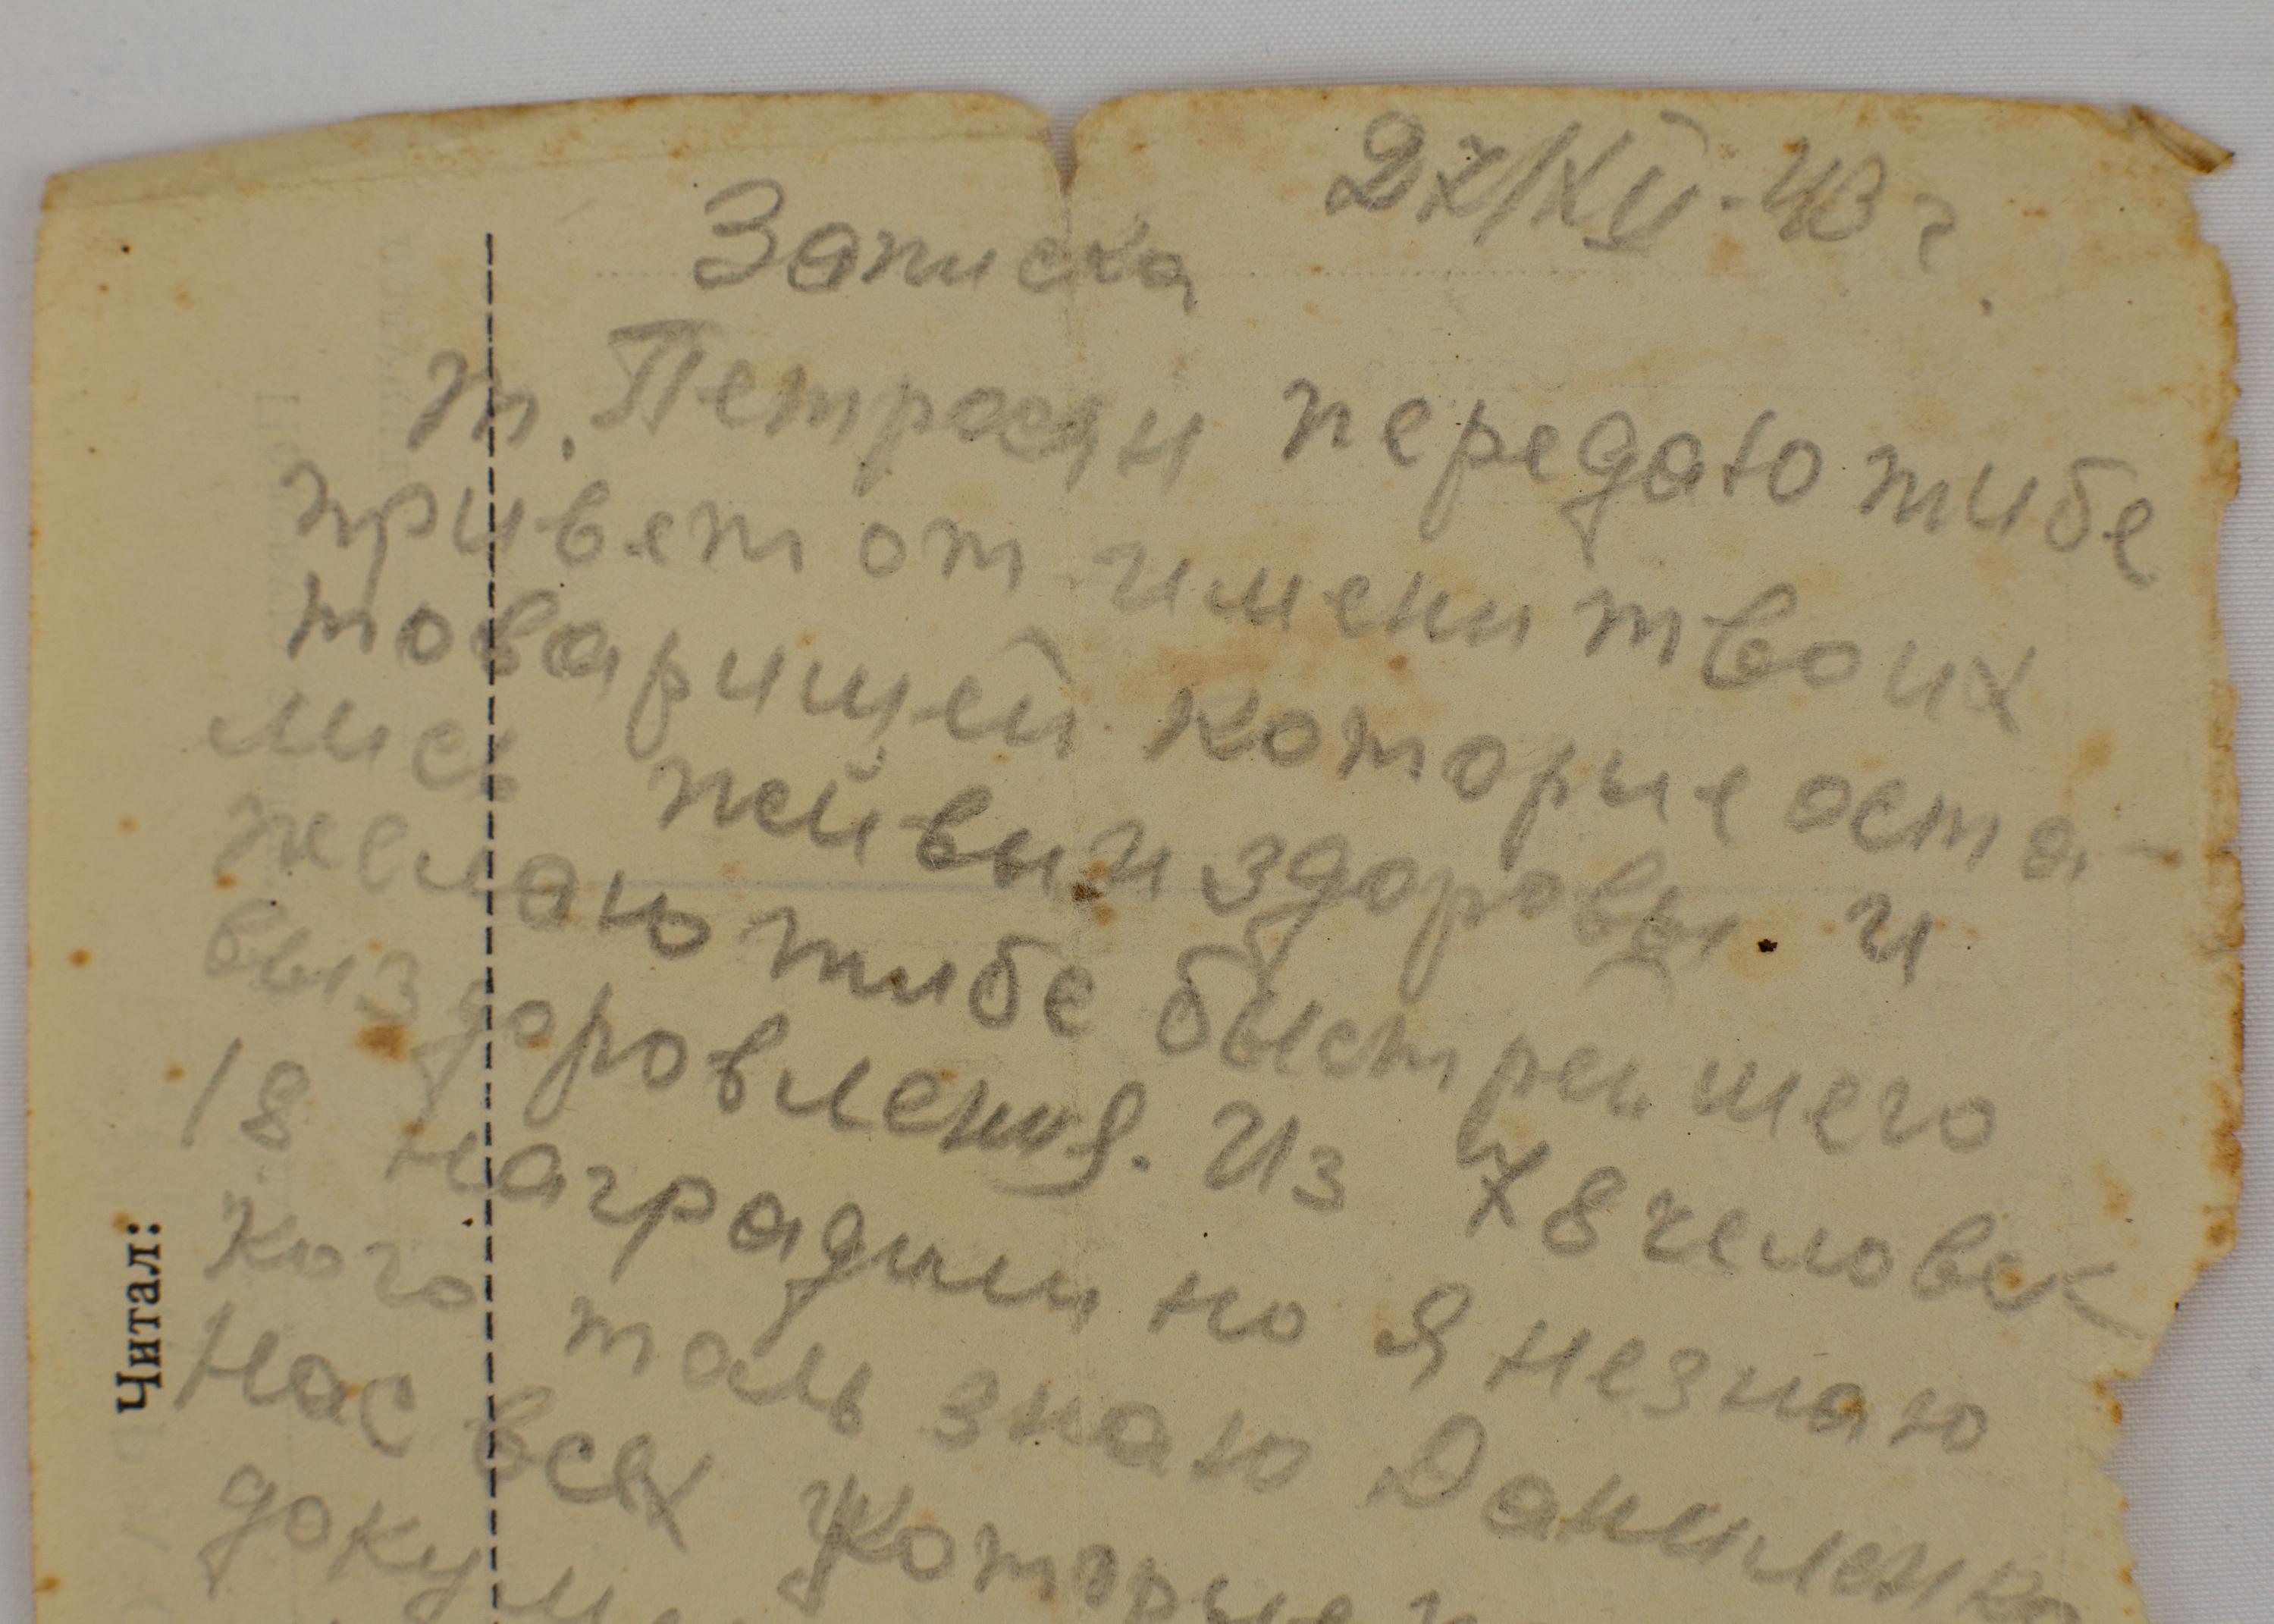 27/XII-43 г.
Записка
т. Петросян передаю тибе
привет от имени твоих
товарищей которые оста-
лись жывы и здоровы. и
желаю тибе быстрейшего
выздоровления. Из 78 человек
18 наградили но я незнаю
кого толь знаю Даниленко
Нас всех которые
Читал: